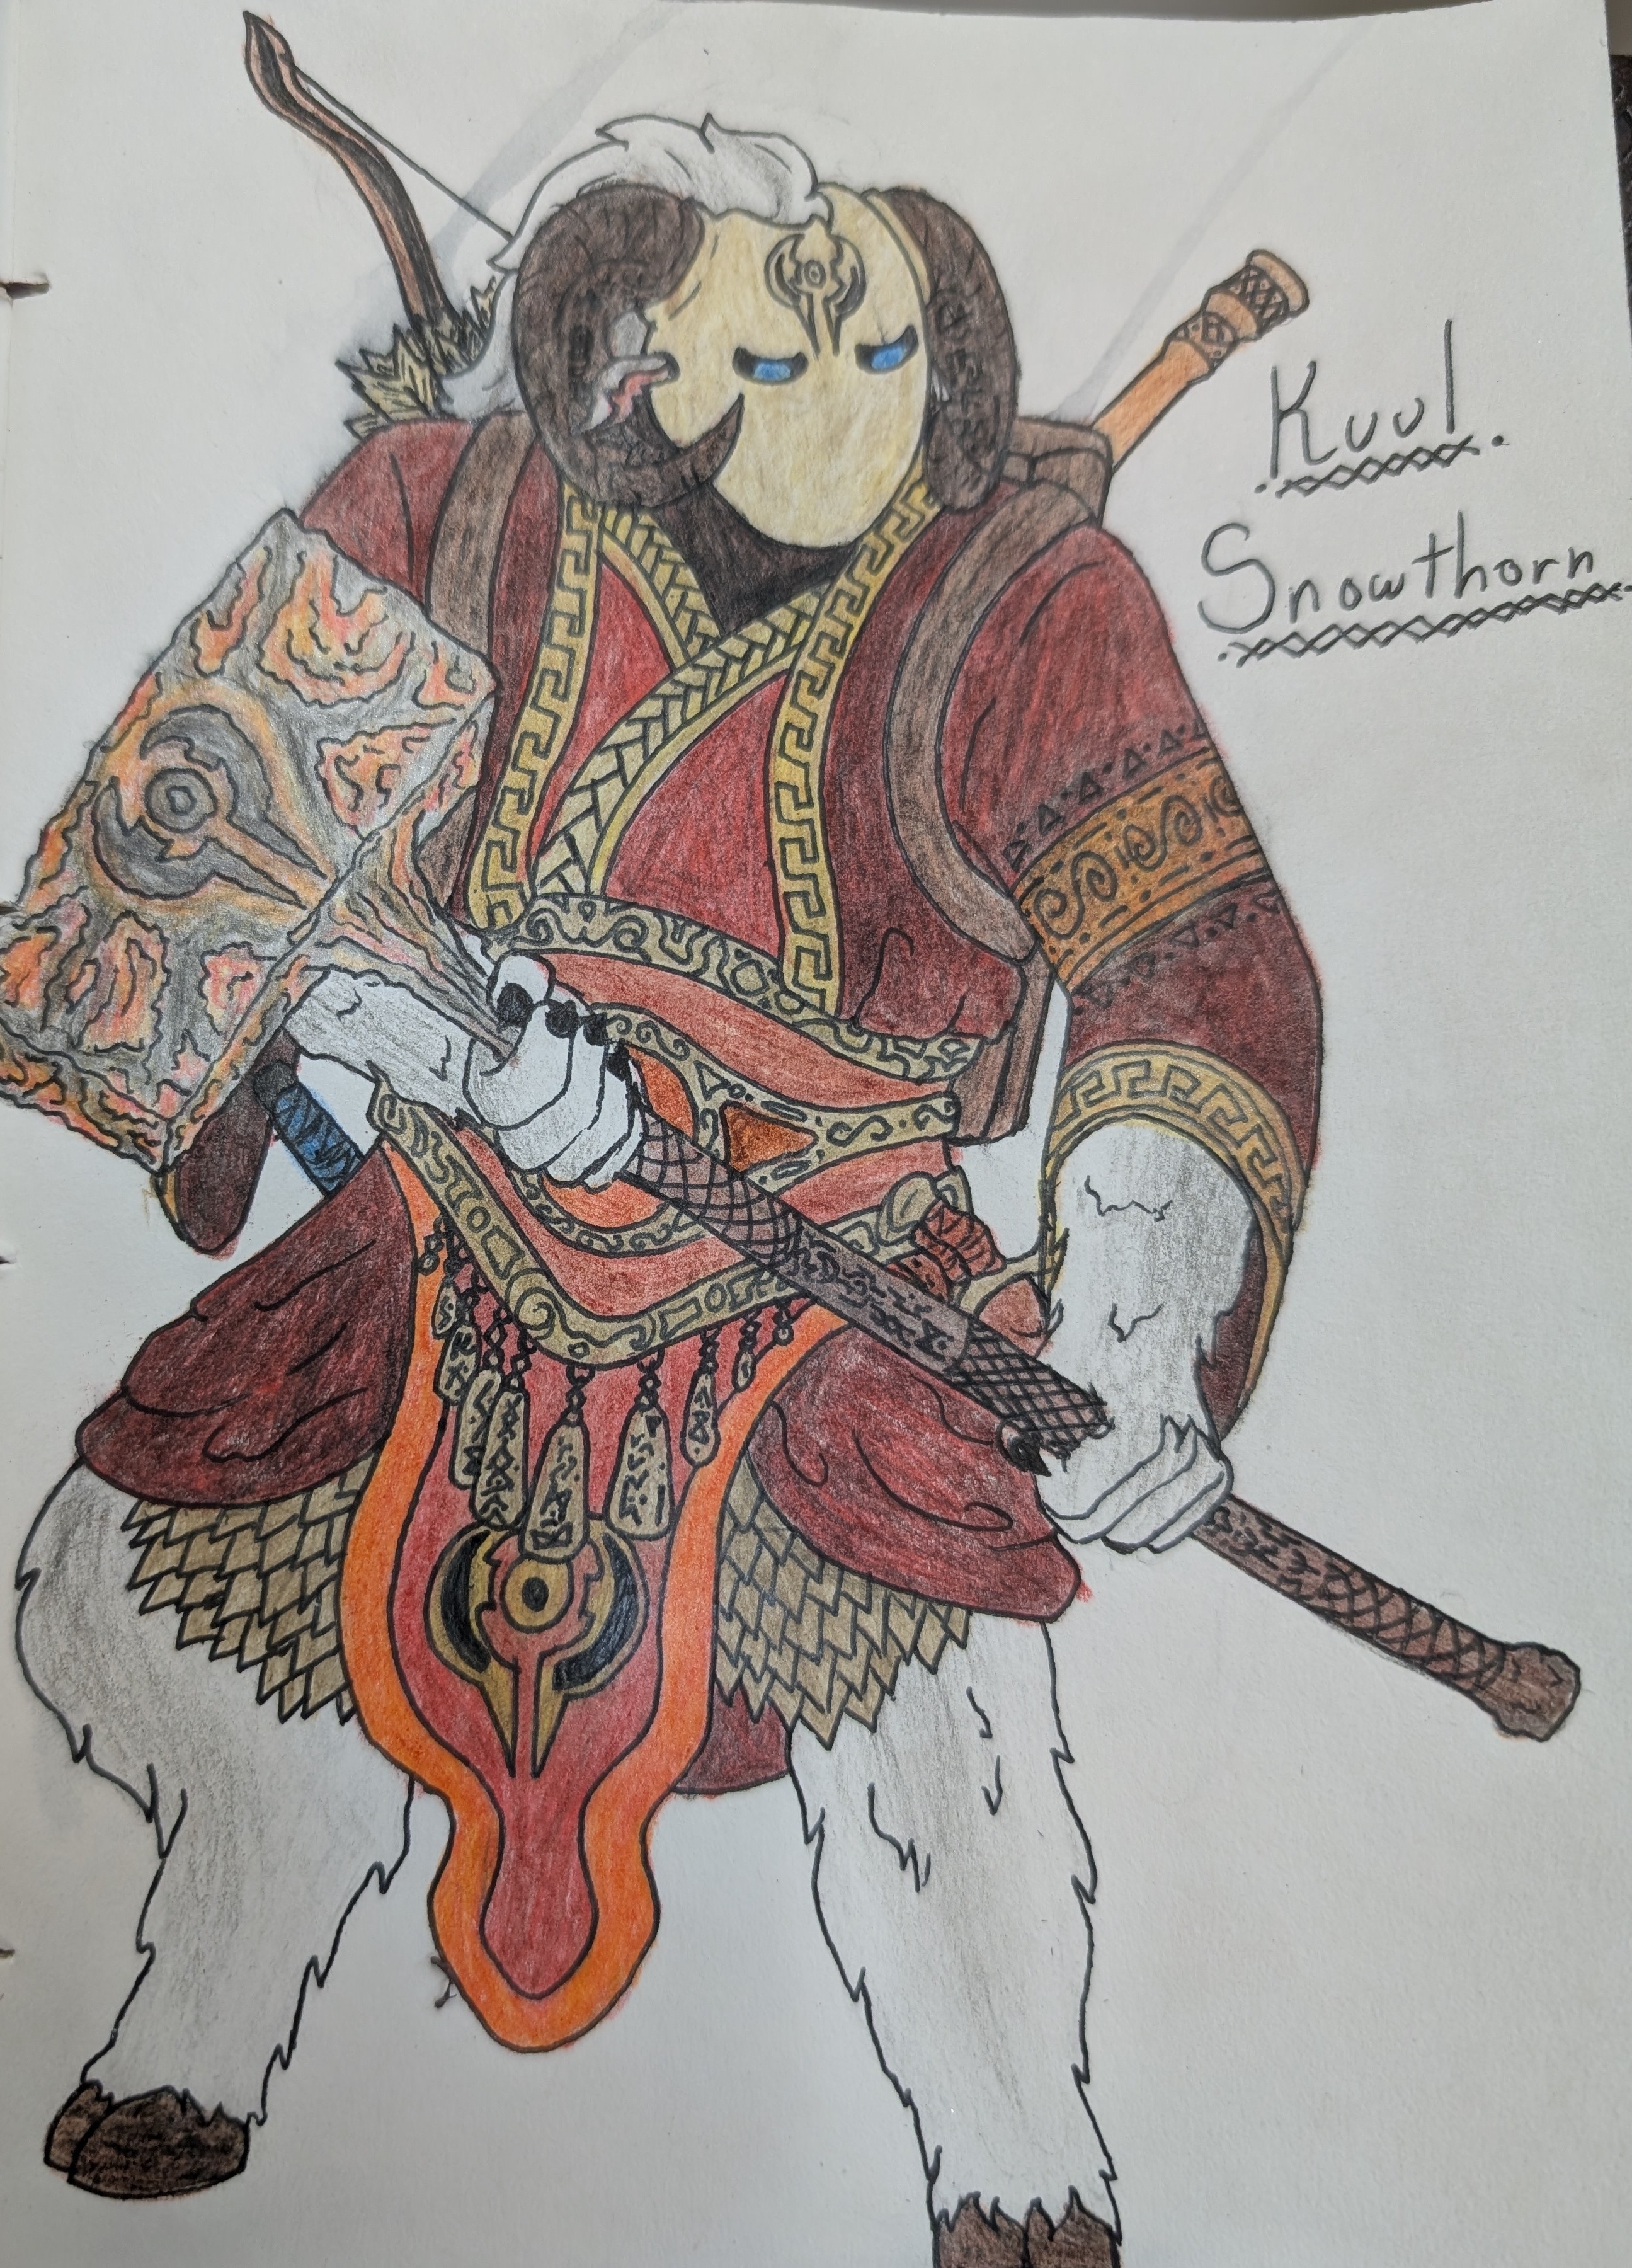 Kuul
Snowthorn